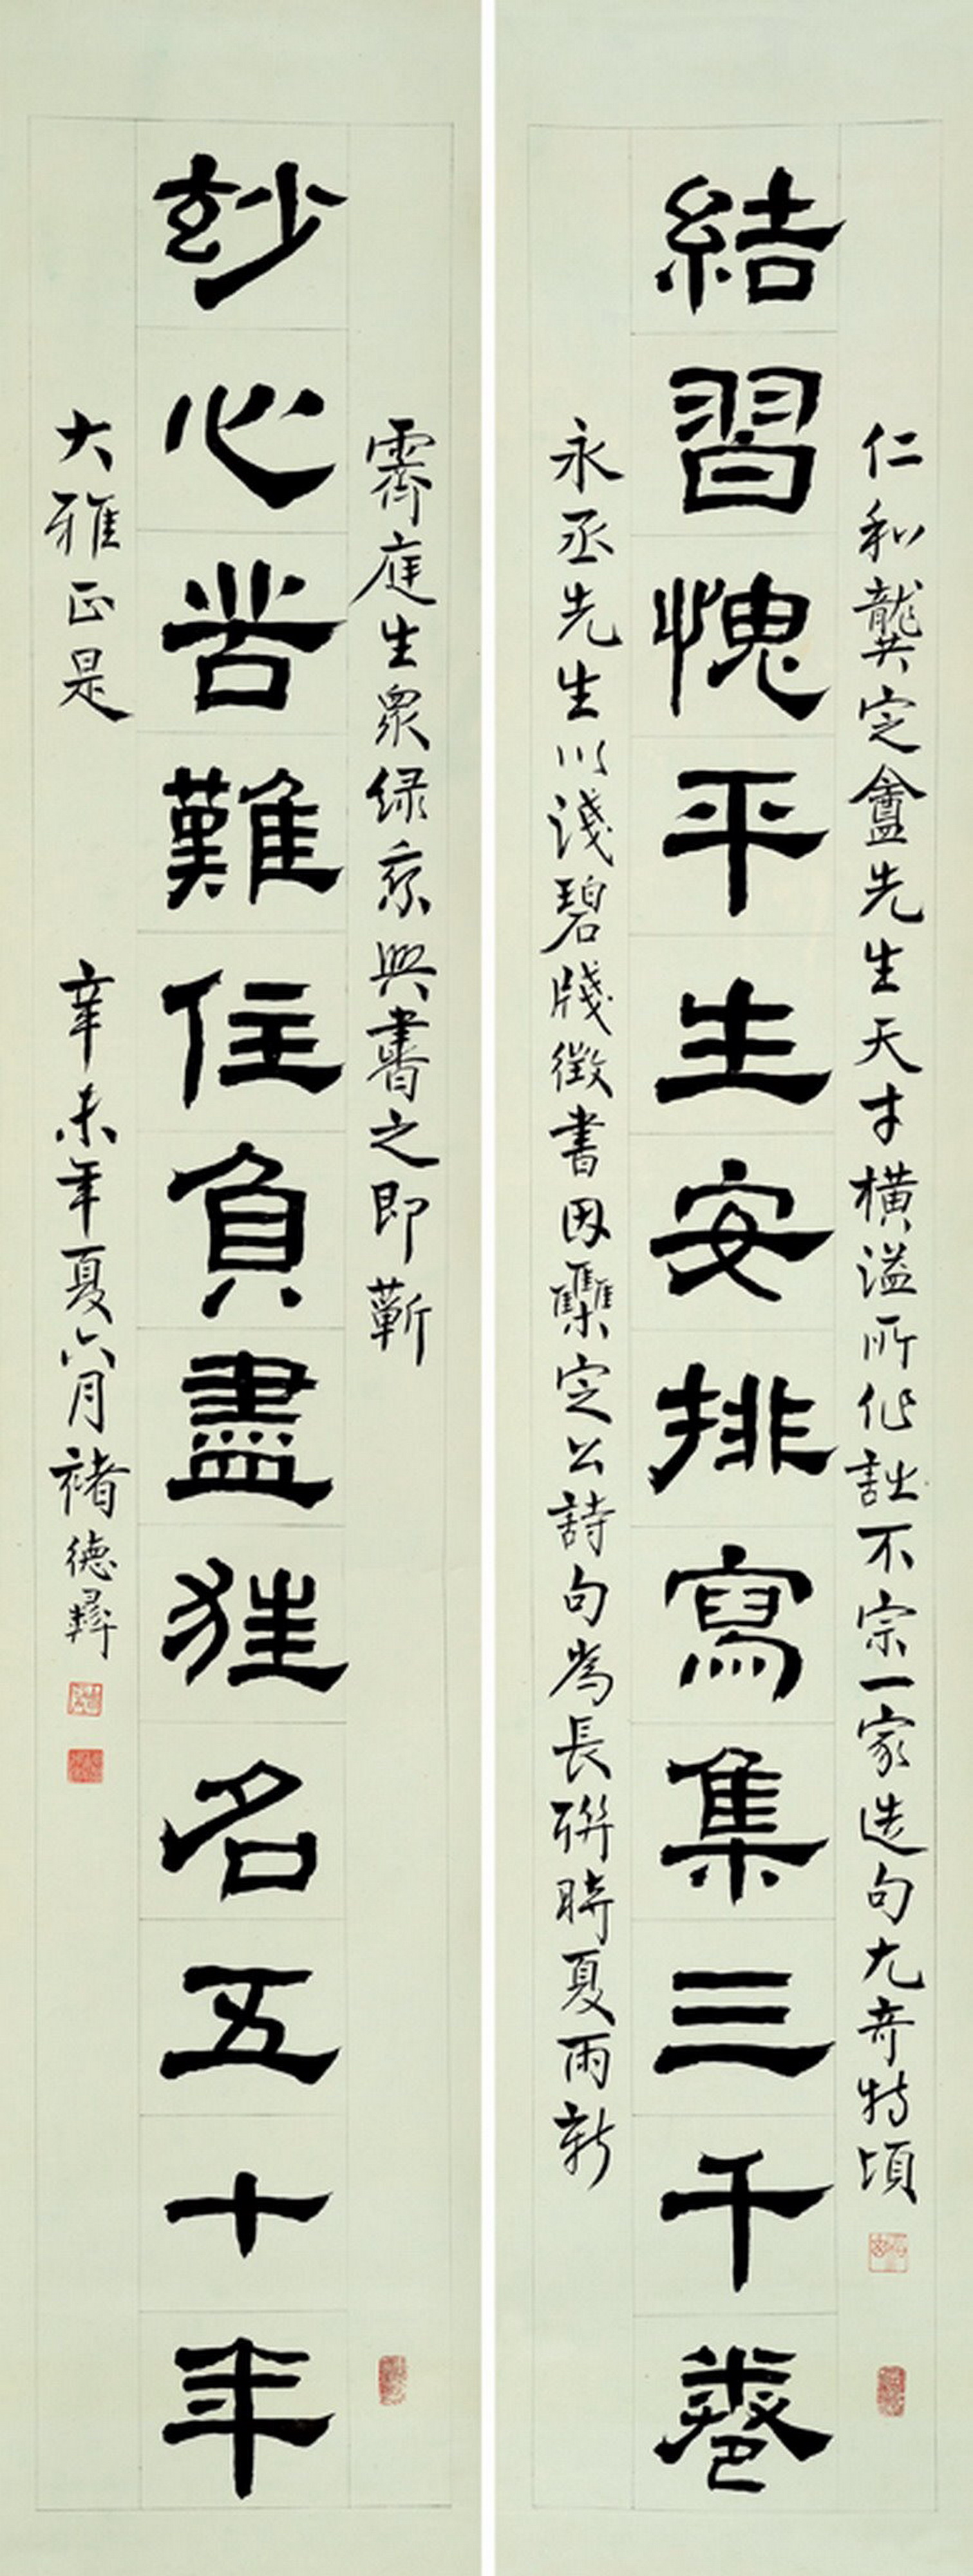 仁和龔定盦先生天才橫溢所作詩不宗一家造句尤奇特頃
結習愧平生安排寫集三千卷
永丞先生以淺碧牋徵書因雧定公詩句為長聯時夏雨新
霽庭生衆綠乘興書之即蘄
玅心苦難住負盡狂名五十年
大雅正是 辛未年夏六月褚德彝